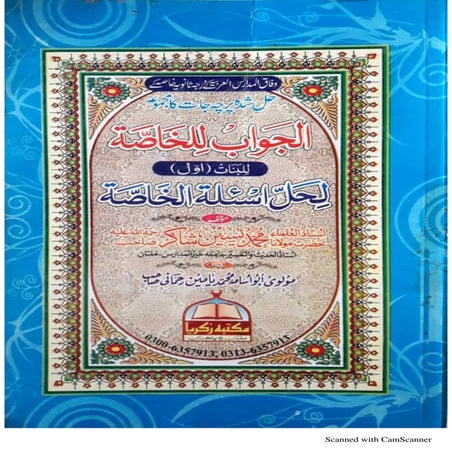 وفاق المدارس العربیہ کے درجہ ثانویہ خاصہ کے
حل شدہ پرچہ جات کا مجموعہ
الجواب للخاصّة
للبنات (اوّل)
لحلّ اسئلة الخاصّة
استاذ العلماء حضرت مولانا محمد یٰسین شاکر رحمۃ اللہ علیہ صاحب
استاذ الحدیث والتفسیر جامعہ خیر المدارس ملتان
مولوی ابو اسامہ محمد یامین رحمانی صاحب
مکتبہ زکریا
0300-6357913, 0313-6357913
Scanned with CamScanner